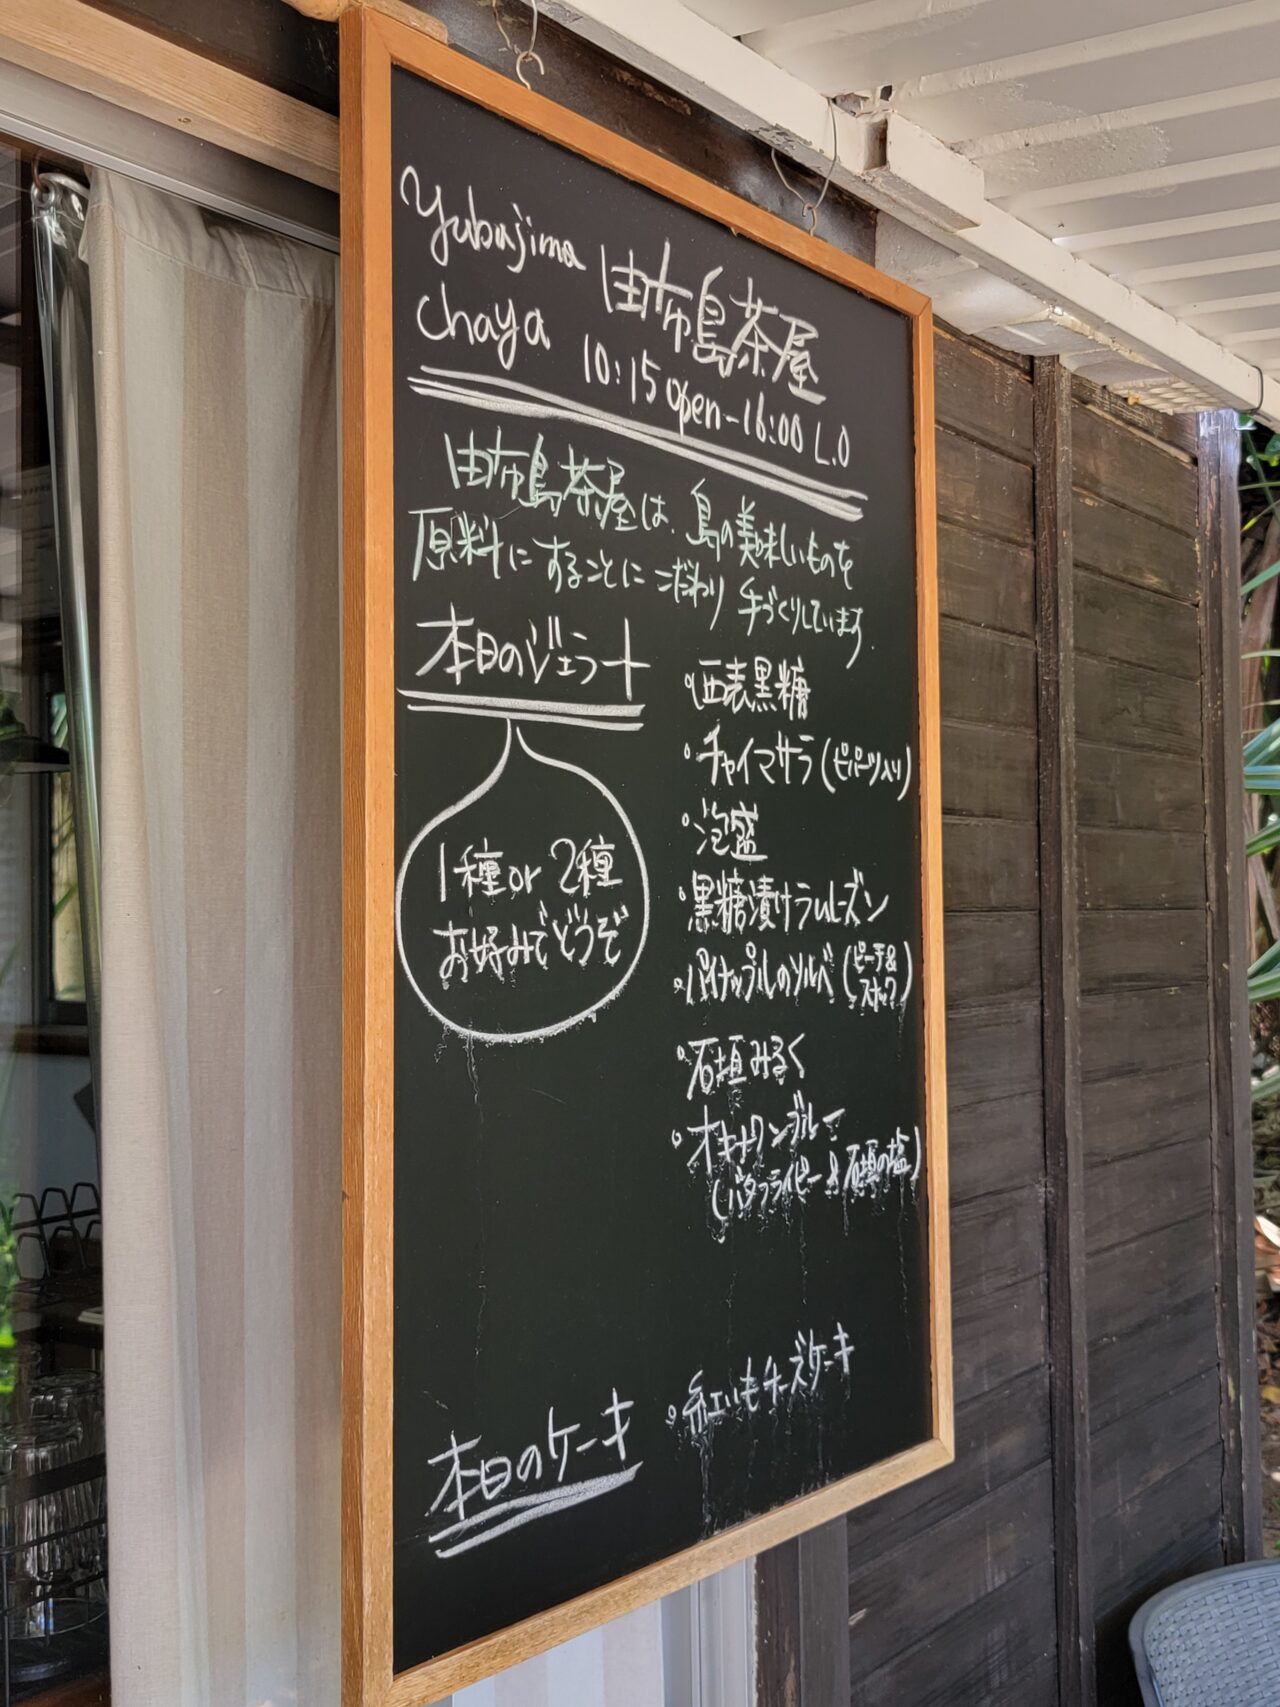 Yubujima
chaya
由布島茶屋
10:15 open-16:00 L.O
由布島茶屋は、島の美味しいものを
原料にすることにこだわり 手づくりしています。
本日のジェラート
1種or 2種
お好みでどうぞ
西表黒糖
チャイマサラ(ピパーツ入り)
泡盛
黒糖漬けラムレーズン
パイナップルのソルベ (ピーチ&
スナック)
石垣みるく
オキナワンブルー
(バタフライピー & 石垣の塩)
本日のケーキ
紅いもチーズケーキ